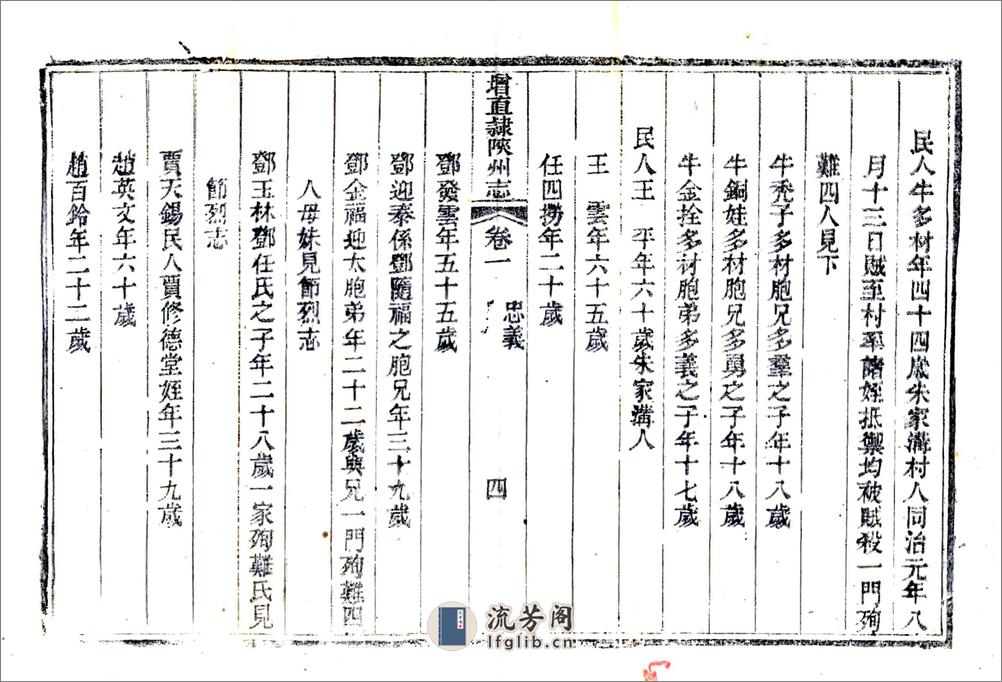 民人牛多材年四十四歲朱家溝村人同治元年八
月十三日賊至村率諸姪抵禦均被賊殺一門殉
難四人見下
牛禿子多材胞兄多羣之子年十八歲
牛銅娃多材胞兄多勇之子年十八歲
牛金拴多材胞弟多義之子年十七歲
民人王 平年六十歲朱家溝人
王 雲年六十五歲
任四撈年二十歲
增直隸陝州志 卷一 忠義 四
鄧發雲年五十五歲
鄧迎泰係鄧隨福之胞兄年三十九歲
鄧金福迎太胞弟年二十二歲與兄一門殉難四
人母妹見節烈志
鄧玉林鄧任氏之子年二十八歲一家殉難氏見
節烈志
賈天錫民人賈修德堂姪年三十九歲
趙英文年六十歲
趙百鈴年二十二歲
流芳阁
lfglib.cn